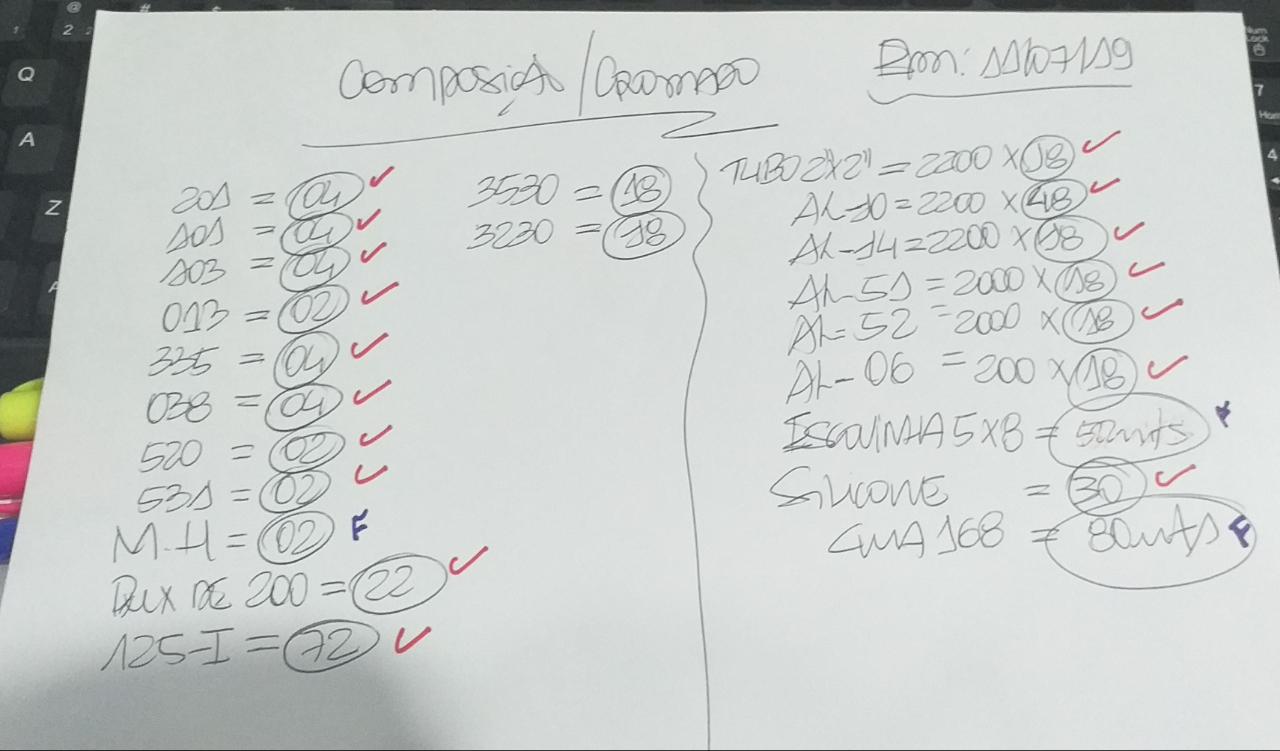 Composição/Cromado
Em: 11/07/19
201 = 04
101 = 04
103 = 04
013 = 02
335 = 04
038 = 04
520 = 02
531 = 02
M.H = 02 F
BUX DE 200 = 22
125-I = 72
3530 = 18
3230 = 18
TUBO 2"X2" = 2200 X 18
AL-10 = 2200 X 48
AL-14 = 2200 X 18
AL-51 = 2000 X 18
AL-52 = 2000 X 18
AL-06 = 200 X 18
ESCOVINHA 5X8 = 50mts
SILICONE = 30
GUA 168 = 80mts F